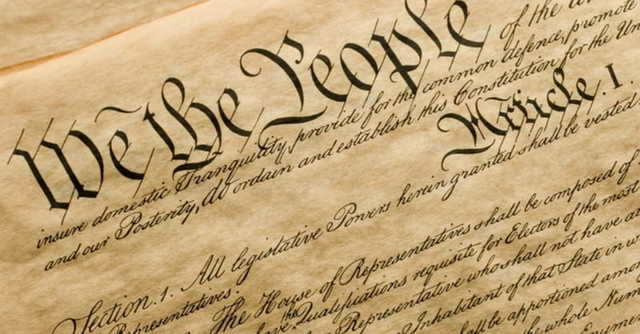 We the People of the
insure domestic Tranquility, provide for the common defence, promote
and our Posterity, do ordain and establish this Constitution for the Un
Article. I.
Section. 1. All legislative Powers herein granted shall be vested
Representatives.
The House of Representatives shall be composed of
have Qualifications requisite for Electors of the most
Representative who shall not have a
Inhabitant of that State in w
shall be apportioned amo
whole Num